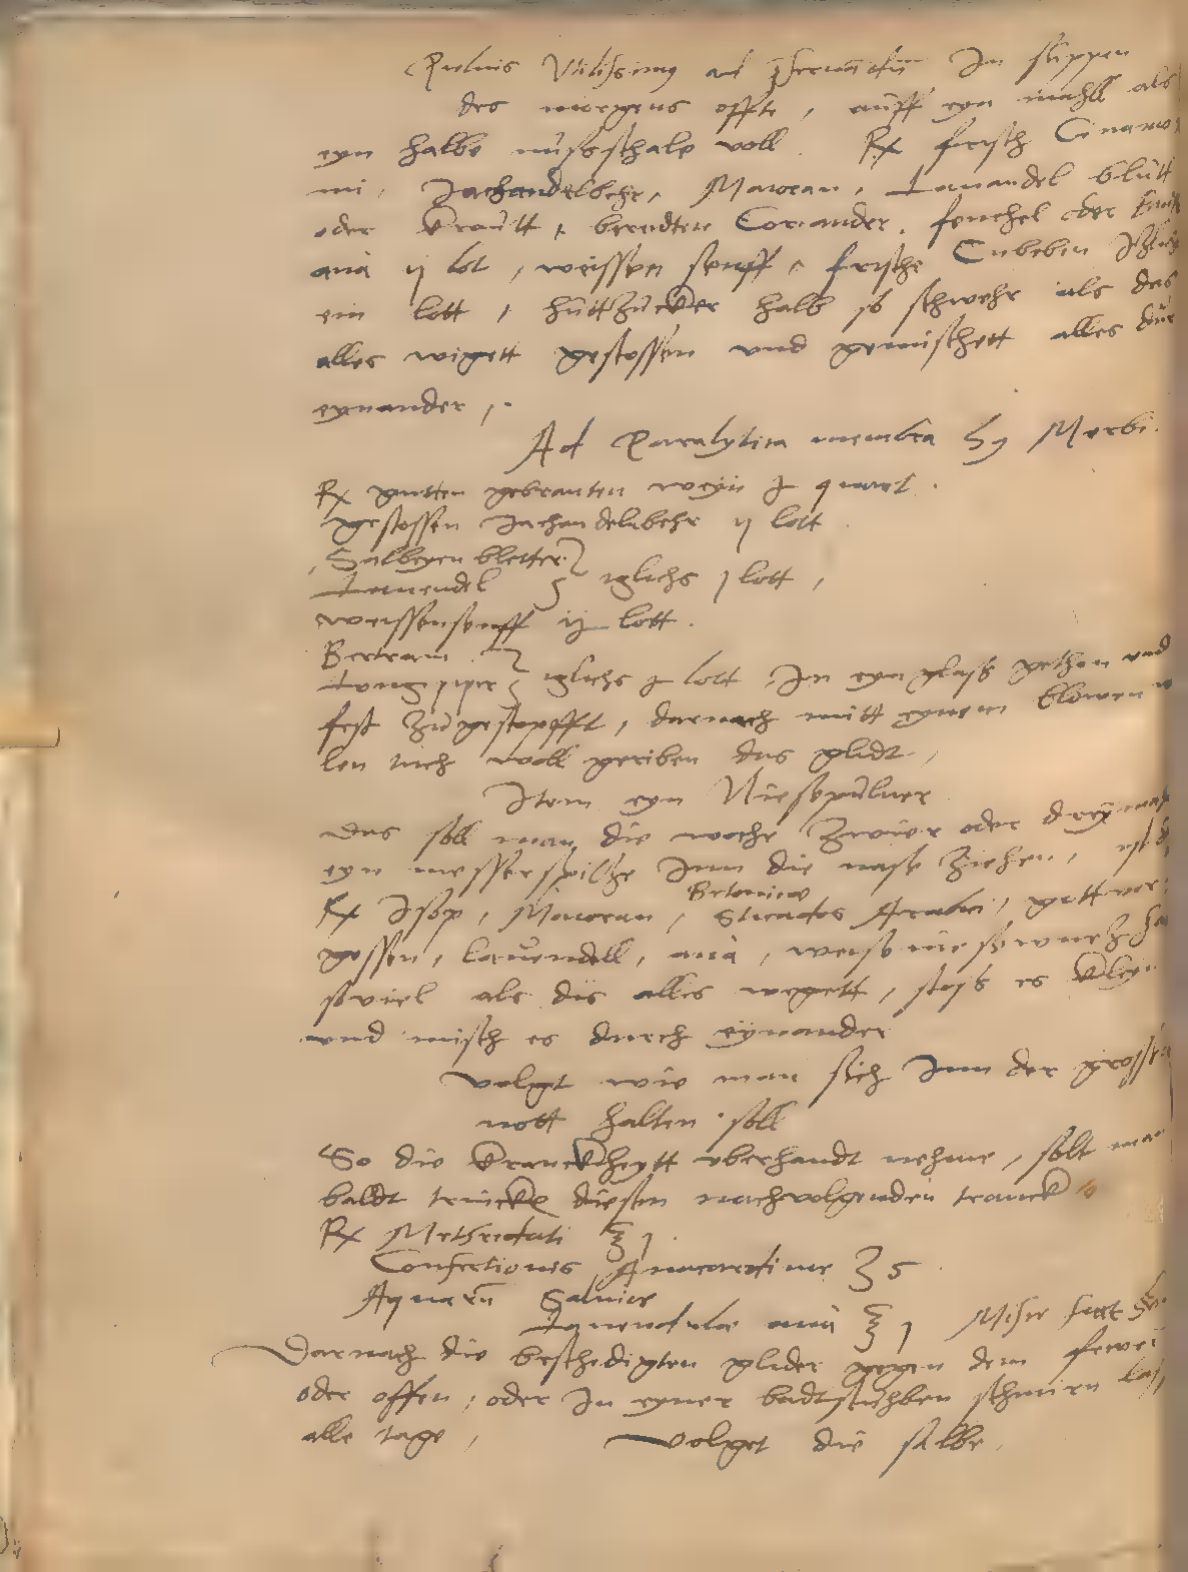 Puluis Vtilissimus ad In suppen
des morgens offte, auff eyn mahll als
eyn halbe nusschale voll. Rx frisch Cinamo
mi, Jachandelbehr, Maioran, Lauandel blutt
oder krautt, bereidten Coriander, fenchel oder
ana ij lot, weissen senff, frische Cubeben
ein lott, huttzucker halb so schwehr als des
alles wigett gestossen vnd gemischett alles dur
eynander,
Ad Paralytica membra hy Morbi.
Rx gutten gebranten weyn j quart.
gestossen Jachandelbehr ij lott
Salbeyen bletter
Lauendel iglichs j lott,
weissensenff ij lott.
Bertram
Long piper iglichs j lott In eyn glass gethan vnd
fest zugestopfft, darnach mitt eynem blowen w
len tuch woll geriben das glidt,
Item eyn Niesepuluer
Das soll man die woche zwier oder dreymahl
eyn messerspitze Inn die nase ziehen,
Betonice
Rx Isop, Maioran, Sticados Arabici, gutt ver
gessen, lauendell, ana, weisse niesewurtz
soviel als dis alles wegett, stoss es kleyn
vnd misch es durch eynander
Volgt wie man sich Inn der grossen
nott halten soll
So die kranckheytt vberhandt nehme, solt man
baldt trincke diesen nachvolgenden tranck
Rx Methridati ℥ j
Confectionis Anacardinae ʒ 5
Aquarum Saluiae
Lauendulae ana ℥ j Misce
Darnach die beschedigten glider gegen dem fewer
oder offen, oder In eyner badtstuhben schmirn
alle tage, Volget die salbe.